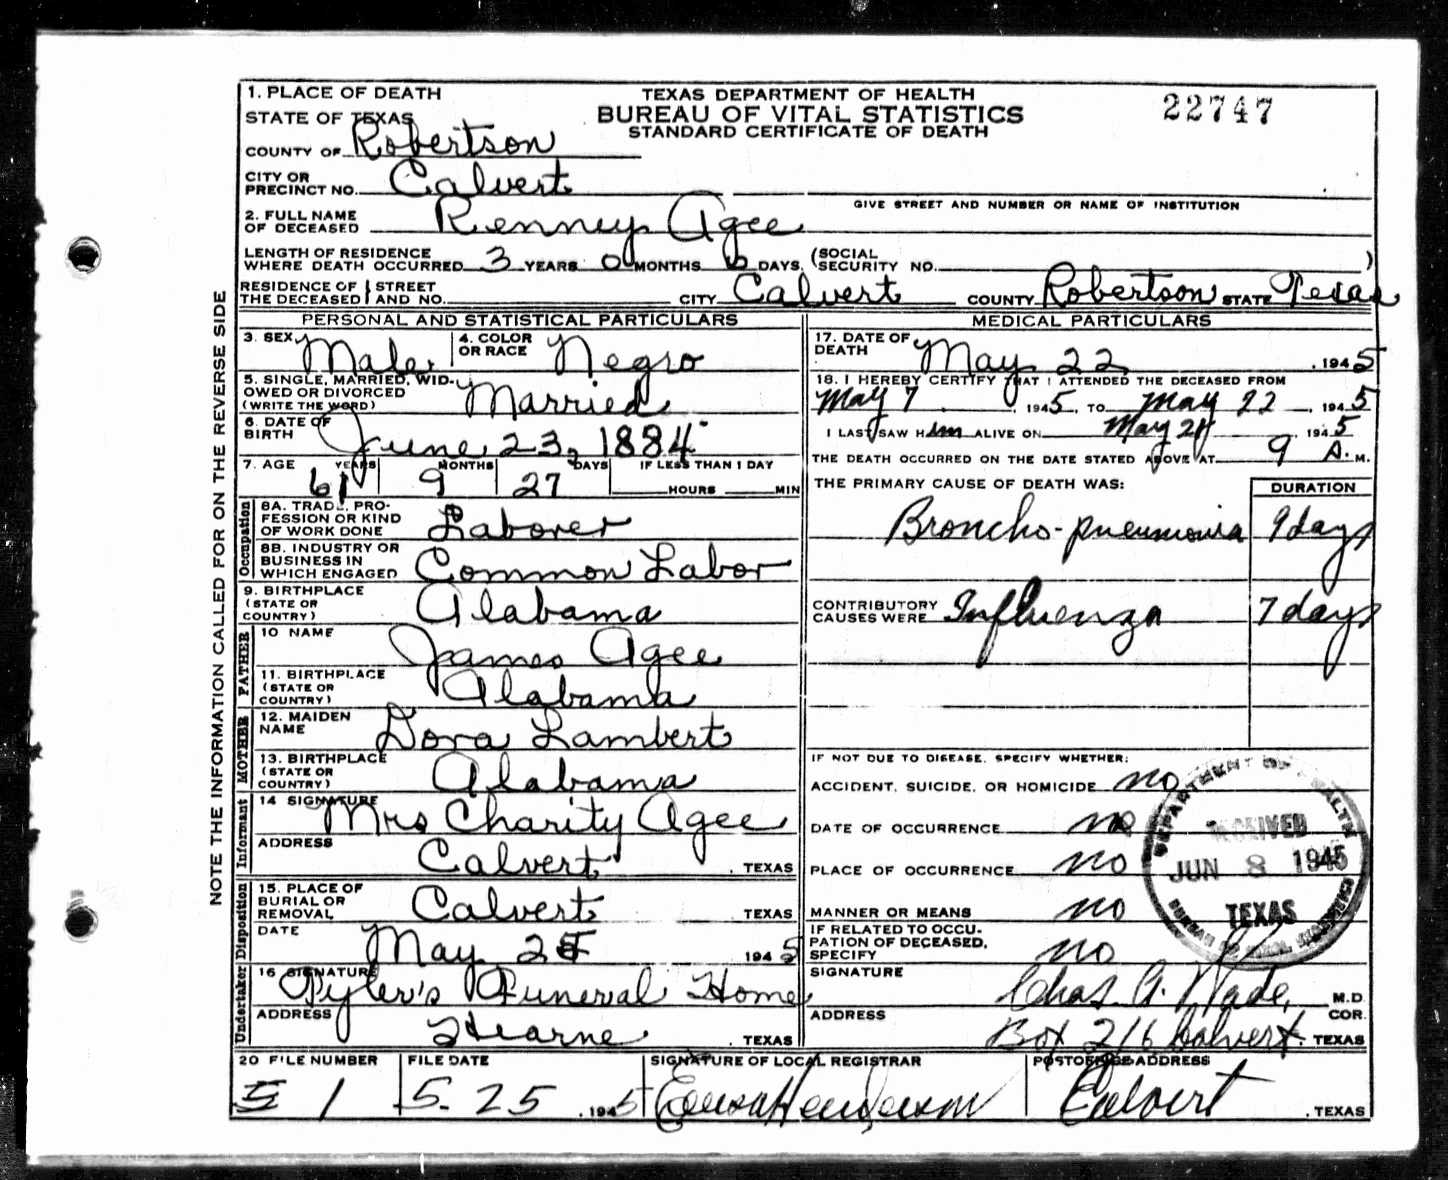 1. PLACE OF DEATH
STATE OF TEXAS
COUNTY OF Robertson
TEXAS DEPARTMENT OF HEALTH
BUREAU OF VITAL STATISTICS
STANDARD CERTIFICATE OF DEATH
22747
CITY OR PRECINCT NO. Calvert
GIVE STREET AND NUMBER OR NAME OF INSTITUTION
2. FULL NAME OF DECEASED Renney Agee
LENGTH OF RESIDENCE WHERE DEATH OCCURRED 3 YEARS 0 MONTHS 6 DAYS. (SOCIAL SECURITY NO. )
RESIDENCE OF THE DECEASED STREET AND NO. CITY Calvert COUNTY Robertson STATE Texas
PERSONAL AND STATISTICAL PARTICULARS
3. SEX Male 4. COLOR OR RACE Negro
5. SINGLE, MARRIED, WIDOWED OR DIVORCED (WRITE THE WORD) Married
6. DATE OF BIRTH June 23, 1884
7. AGE 61 YEARS 9 MONTHS 27 DAYS IF LESS THAN 1 DAY HOURS MIN
Occupation
8A. TRADE, PROFESSION OR KIND OF WORK DONE Laborer
8B. INDUSTRY OR BUSINESS IN WHICH ENGAGED Common Labor
9. BIRTHPLACE (STATE OR COUNTRY) Alabama
FATHER
10 NAME James Agee
11. BIRTHPLACE (STATE OR COUNTRY) Alabama
MOTHER
12. MAIDEN NAME Dora Lambert
13. BIRTHPLACE (STATE OR COUNTRY) Alabama
Informant
14 SIGNATURE Mrs Charity Agee
ADDRESS Calvert, TEXAS
Disposition
15. PLACE OF BURIAL OR REMOVAL Calvert TEXAS
DATE May 25 1945
Undertaker
16 SIGNATURE Pyler's Funeral Home
ADDRESS Hearne, TEXAS
MEDICAL PARTICULARS
17. DATE OF DEATH May 22, 1945
18. I HEREBY CERTIFY THAT I ATTENDED THE DECEASED FROM
May 7, 1945, TO May 22, 1945
I LAST SAW HIM ALIVE ON May 21 1945
THE DEATH OCCURRED ON THE DATE STATED ABOVE AT 9 A. M.
THE PRIMARY CAUSE OF DEATH WAS: DURATION
Broncho-pneumonia 9 days
CONTRIBUTORY CAUSES WERE Influenza 7 days
IF NOT DUE TO DISEASE, SPECIFY WHETHER:
ACCIDENT, SUICIDE, OR HOMICIDE no
DATE OF OCCURRENCE no
PLACE OF OCCURRENCE no
MANNER OR MEANS no
IF RELATED TO OCCUPATION OF DECEASED, SPECIFY no
SIGNATURE Chas. A. Wade, M.D. COR.
ADDRESS Box 216 Calvert, TEXAS
DEPARTMENT OF HEALTH
RECEIVED
JUN 8 1945
TEXAS
BUREAU OF VITAL STATISTICS
20 FILE NUMBER 51
FILE DATE 5-25, 1945
SIGNATURE OF LOCAL REGISTRAR Henderson
POSTOFFICE ADDRESS Calvert, TEXAS
NOTE THE INFORMATION CALLED FOR ON THE REVERSE SIDE